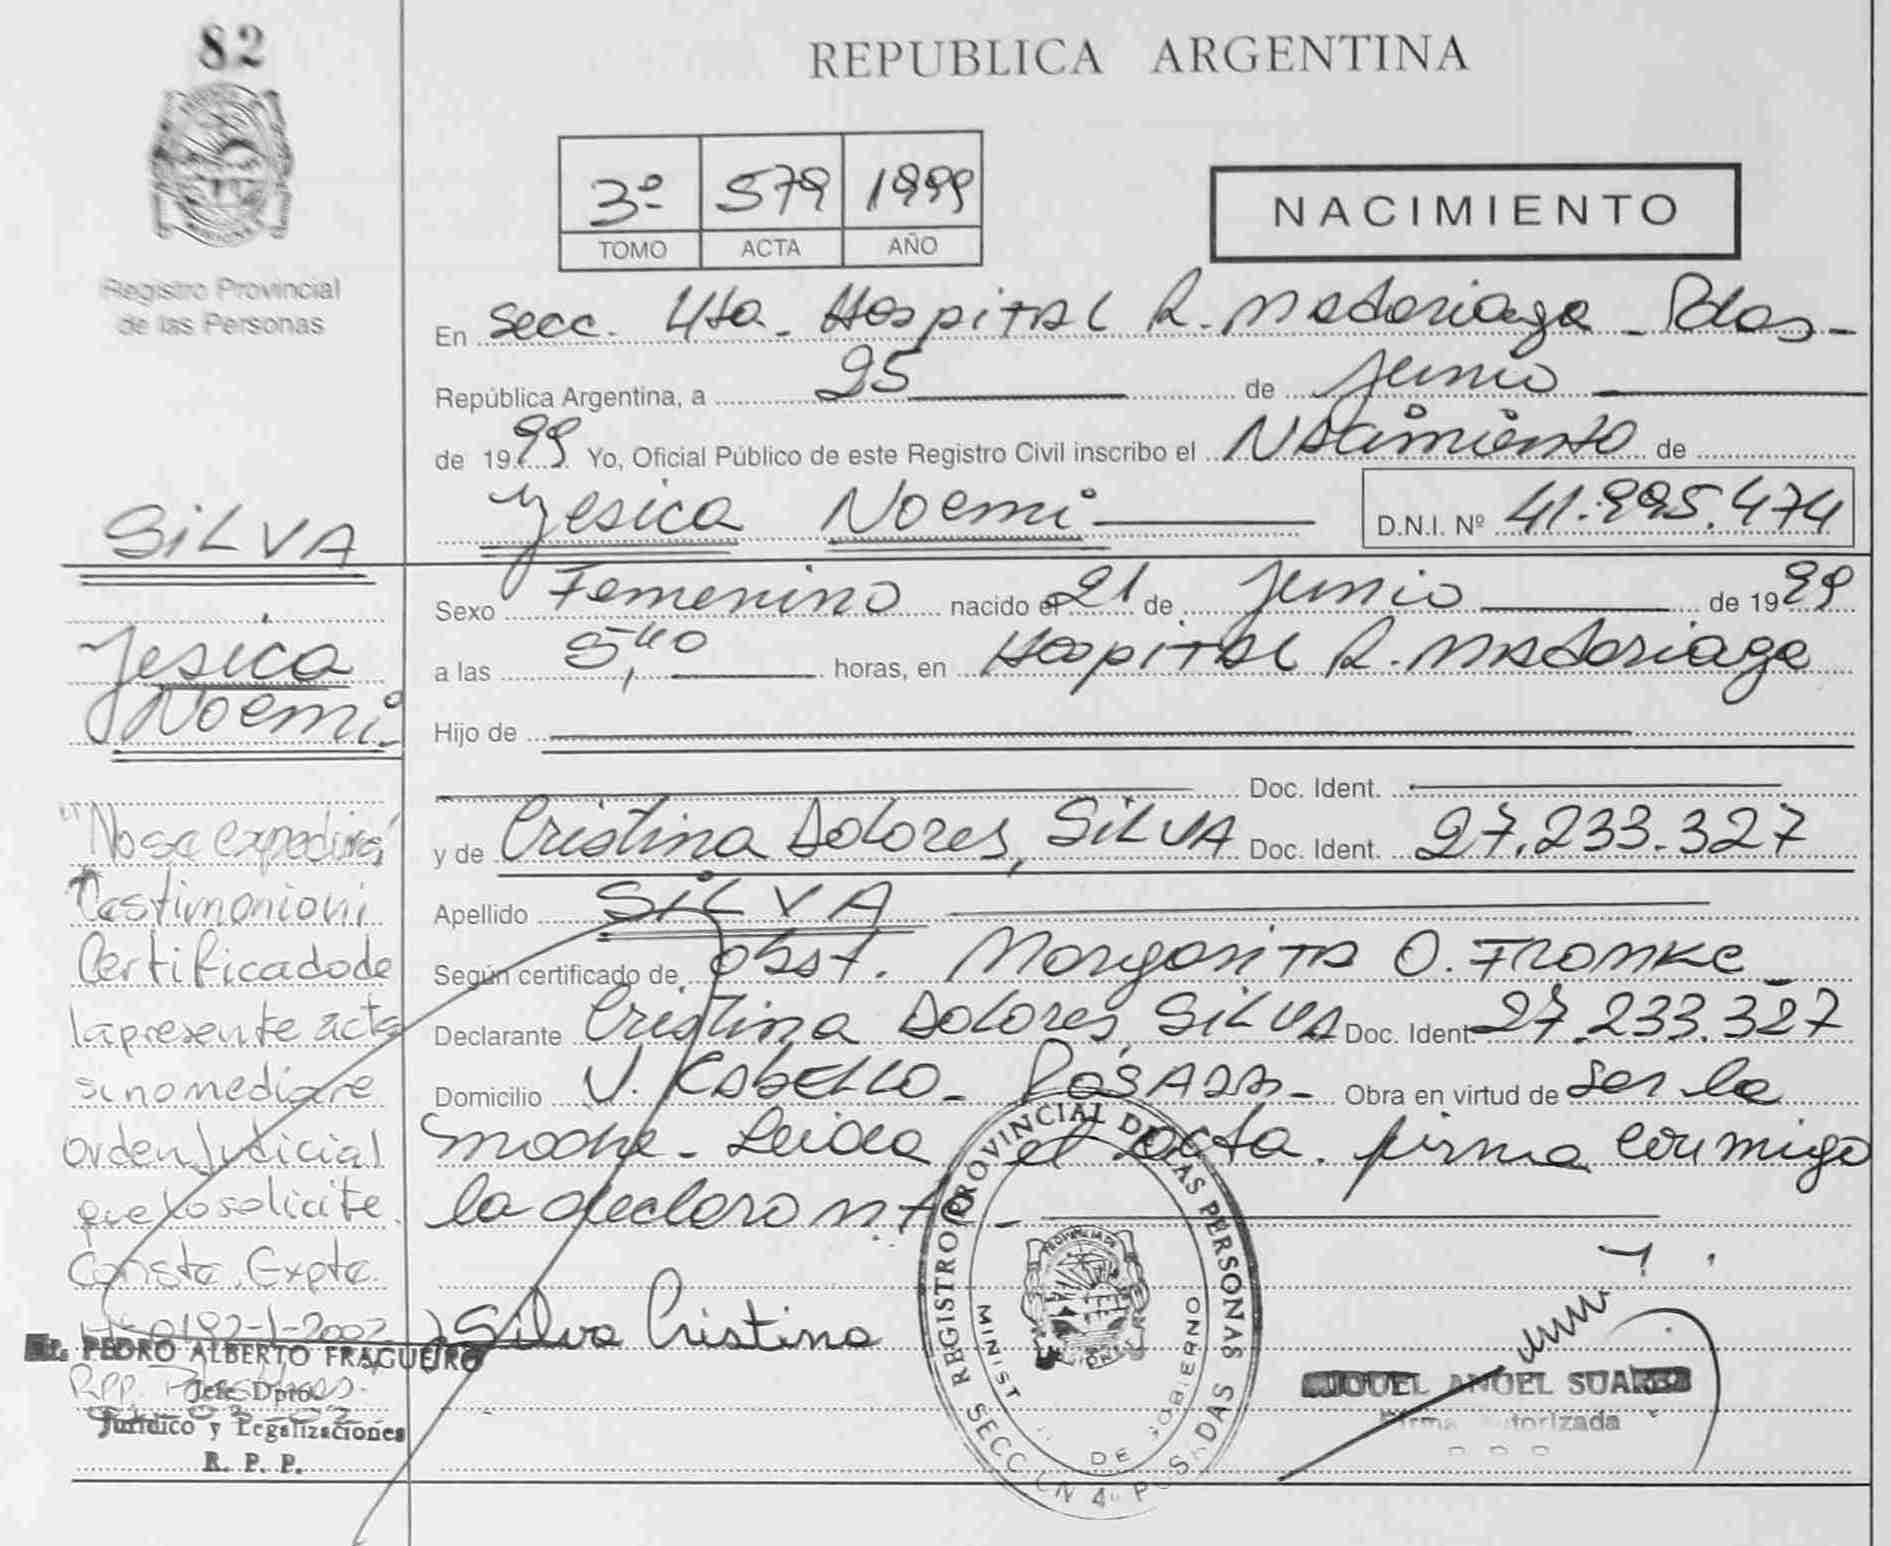 82
REPUBLICA ARGENTINA
3º 579 1999
TOMO ACTA AÑO
NACIMIENTO
Registro Provincial
de las Personas
En Secc. 4ta. Hospital R. Madariaga - Pdas -
República Argentina, a 25 de Junio
de 1999 Yo, Oficial Público de este Registro Civil inscribo el Nacimiento de
Yesica Noemi D.N.I. Nº 41.995.474
SILVA
Yesica
Noemi
Sexo Femenino nacido el 21 de Junio de 1999
a las 5,40 horas, en Hospital R. Madariaga
Hijo de
Doc. Ident.
y de Cristina Dolores, SILVA Doc. Ident. 27.233.327
Apellido SILVA
Según certificado de Obst. Margarita O. Fromke
Declarante Cristina Dolores, SILVA Doc. Ident. 27.233.327
Domicilio V. Cabello - Posadas - Obra en virtud de ser la
madre - Leida el acta. firma conmigo
la declarante -
"No se expedirá
Testimonio ni
Certificado de
la presente acta
si no mediare
orden Judicial
que lo solicite.
Consta Expte.
0192-1-2002
PEDRO ALBERTO FRAGUEIRO
Jefe Dpto.
Jurídico y Legalizaciones
R. P. P.
Silva Cristina
REGISTRO PROVINCIAL DE LAS PERSONAS
MINIST DE GOBIERNO
SECCION 4º POSADAS
MIGUEL ANGEL SUAREZ
Firma Autorizada